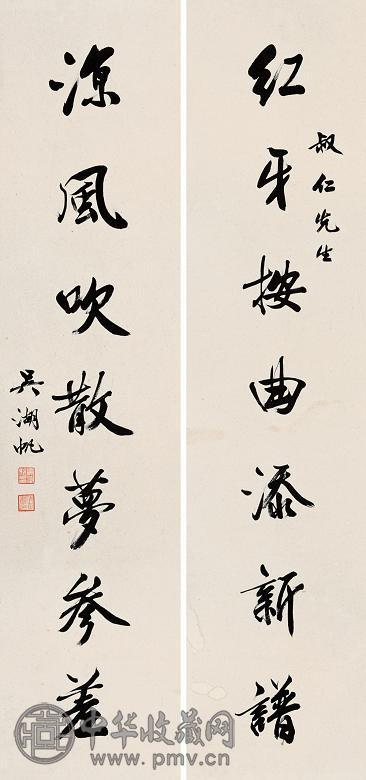 叔仁先生
紅牙按曲添新譜
涼風吹散夢參差
吳湖帆
中华收藏网
www.pmv.cn